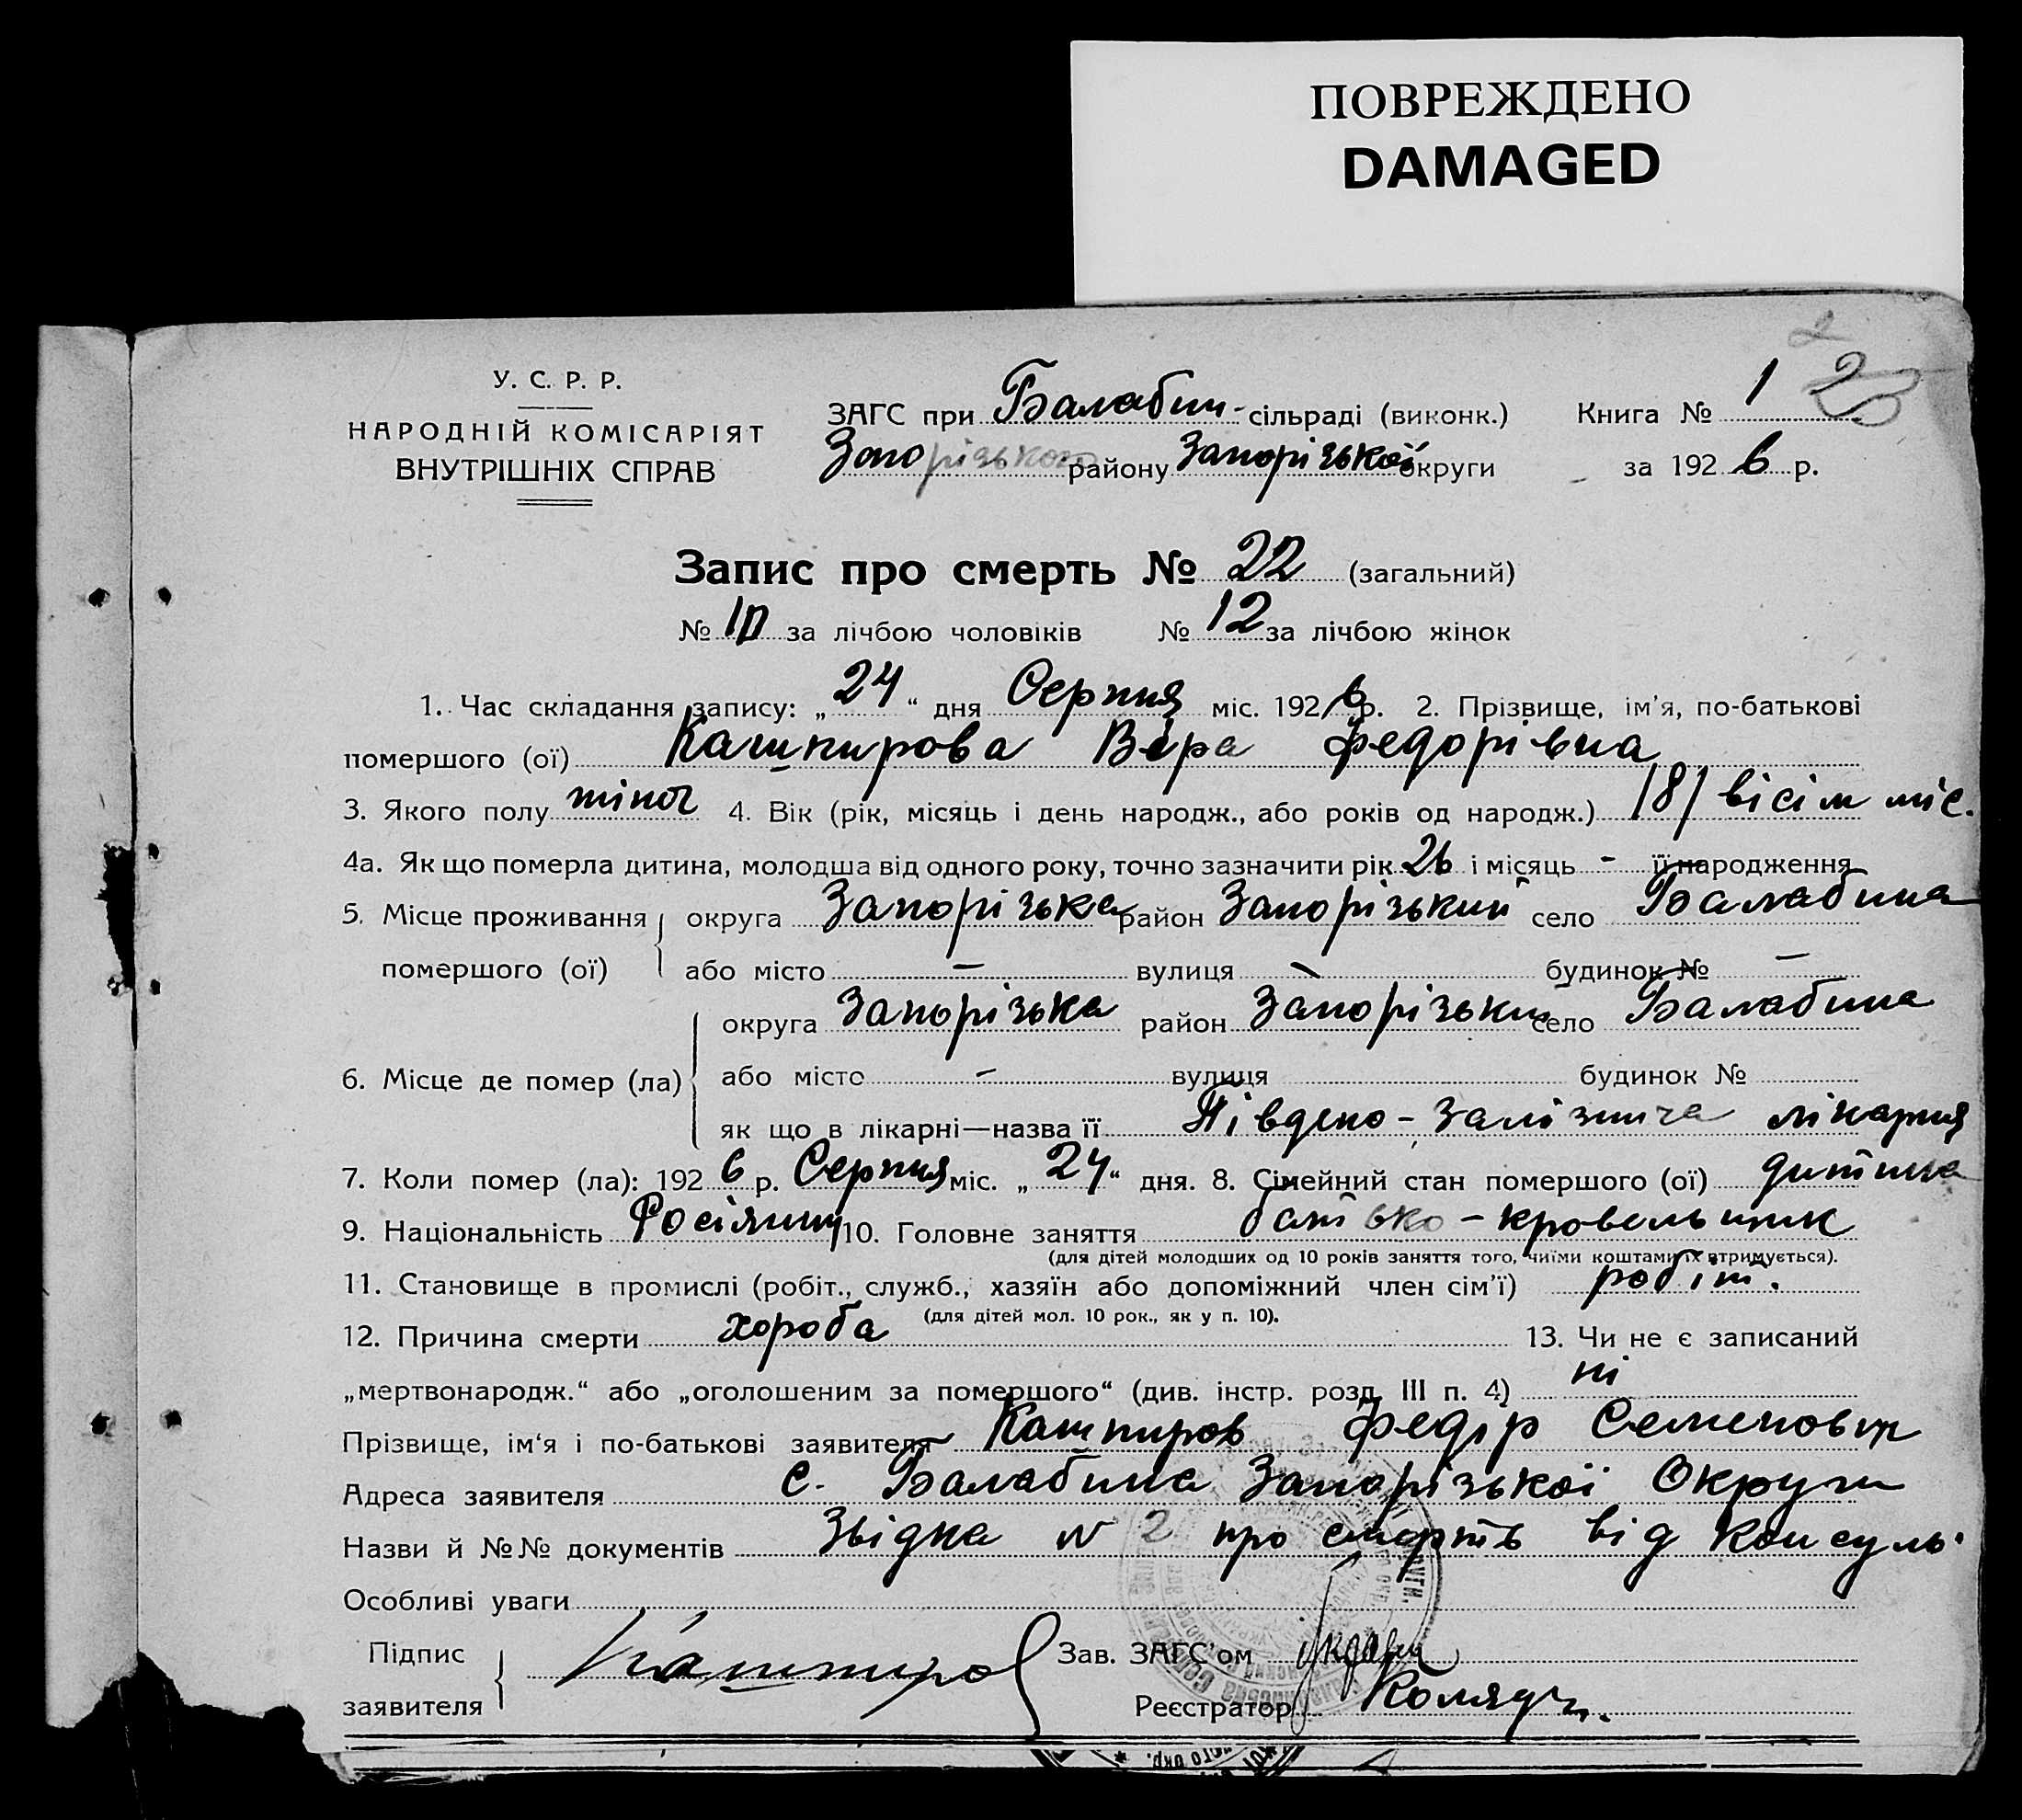 ПОВРЕЖДЕНО
DAMAGED
У. С. Р. Р.
НАРОДНІЙ КОМІСАРІЯТ
ВНУТРІШНІХ СПРАВ
ЗАГС при Балабин- сільраді (виконк.) Книга № 1
Запорізького району Запорізької округи за 192 6 р.
Запис про смерть № 22 (загальний)
№ 10 за лічбою чоловіків № 12 за лічбою жінок
1. Час складання запису: „ 24 “ дня Серпня міс. 192 6 р. 2. Прізвище, ім'я, по-батькові
помершого (ої) Кашпирова Віра Федорівна
3. Якого полу жіноч 4. Вік (рік, місяць і день народж., або років од народж.) /8/ вісім міс.
4а. Як що померла дитина, молодша від одного року, точно зазначити рік 26 і місяць - її народження
5. Місце проживання округа Запорізька район Запорізький село Балабина
помершого (ої) або місто — вулиця — будинок № —
округа Запорізька район Запорізьки село Балабина
6. Місце де помер (ла) або місто - вулиця будинок №
як що в лікарні—назва її Південо-Залізнича лікарня
7. Коли помер (ла): 192 6 р. Серпня міс. „ 24 “ дня. 8. Сімейний стан помершого (ої) дитина
9. Національність Росіянин 10. Головне заняття батько - кровельщик
(для дітей молодших од 10 років заняття того, чиїми коштами їх втримується).
11. Становище в промислі (робіт., служб., хазяїн або допоміжний член сім'ї) робіт.
(для дітей мол. 10 рок., як у п. 10).
12. Причина смерти хороба 13. Чи не є записаний
„мертвонародж.“ або „оголошеним за помершого“ (див. інстр. розд. III п. 4) ні
Прізвище, ім'я і по-батькові заявителя Кашпиров Федір Семенович
Адреса заявителя с. Балабина Запорізької Округи
Назви й №№ документів Звідка N 2 про смерть від консуль.
Особливі уваги
Підпис Зав. ЗАГС'ом
заявителя Кашпиров Реєстратор